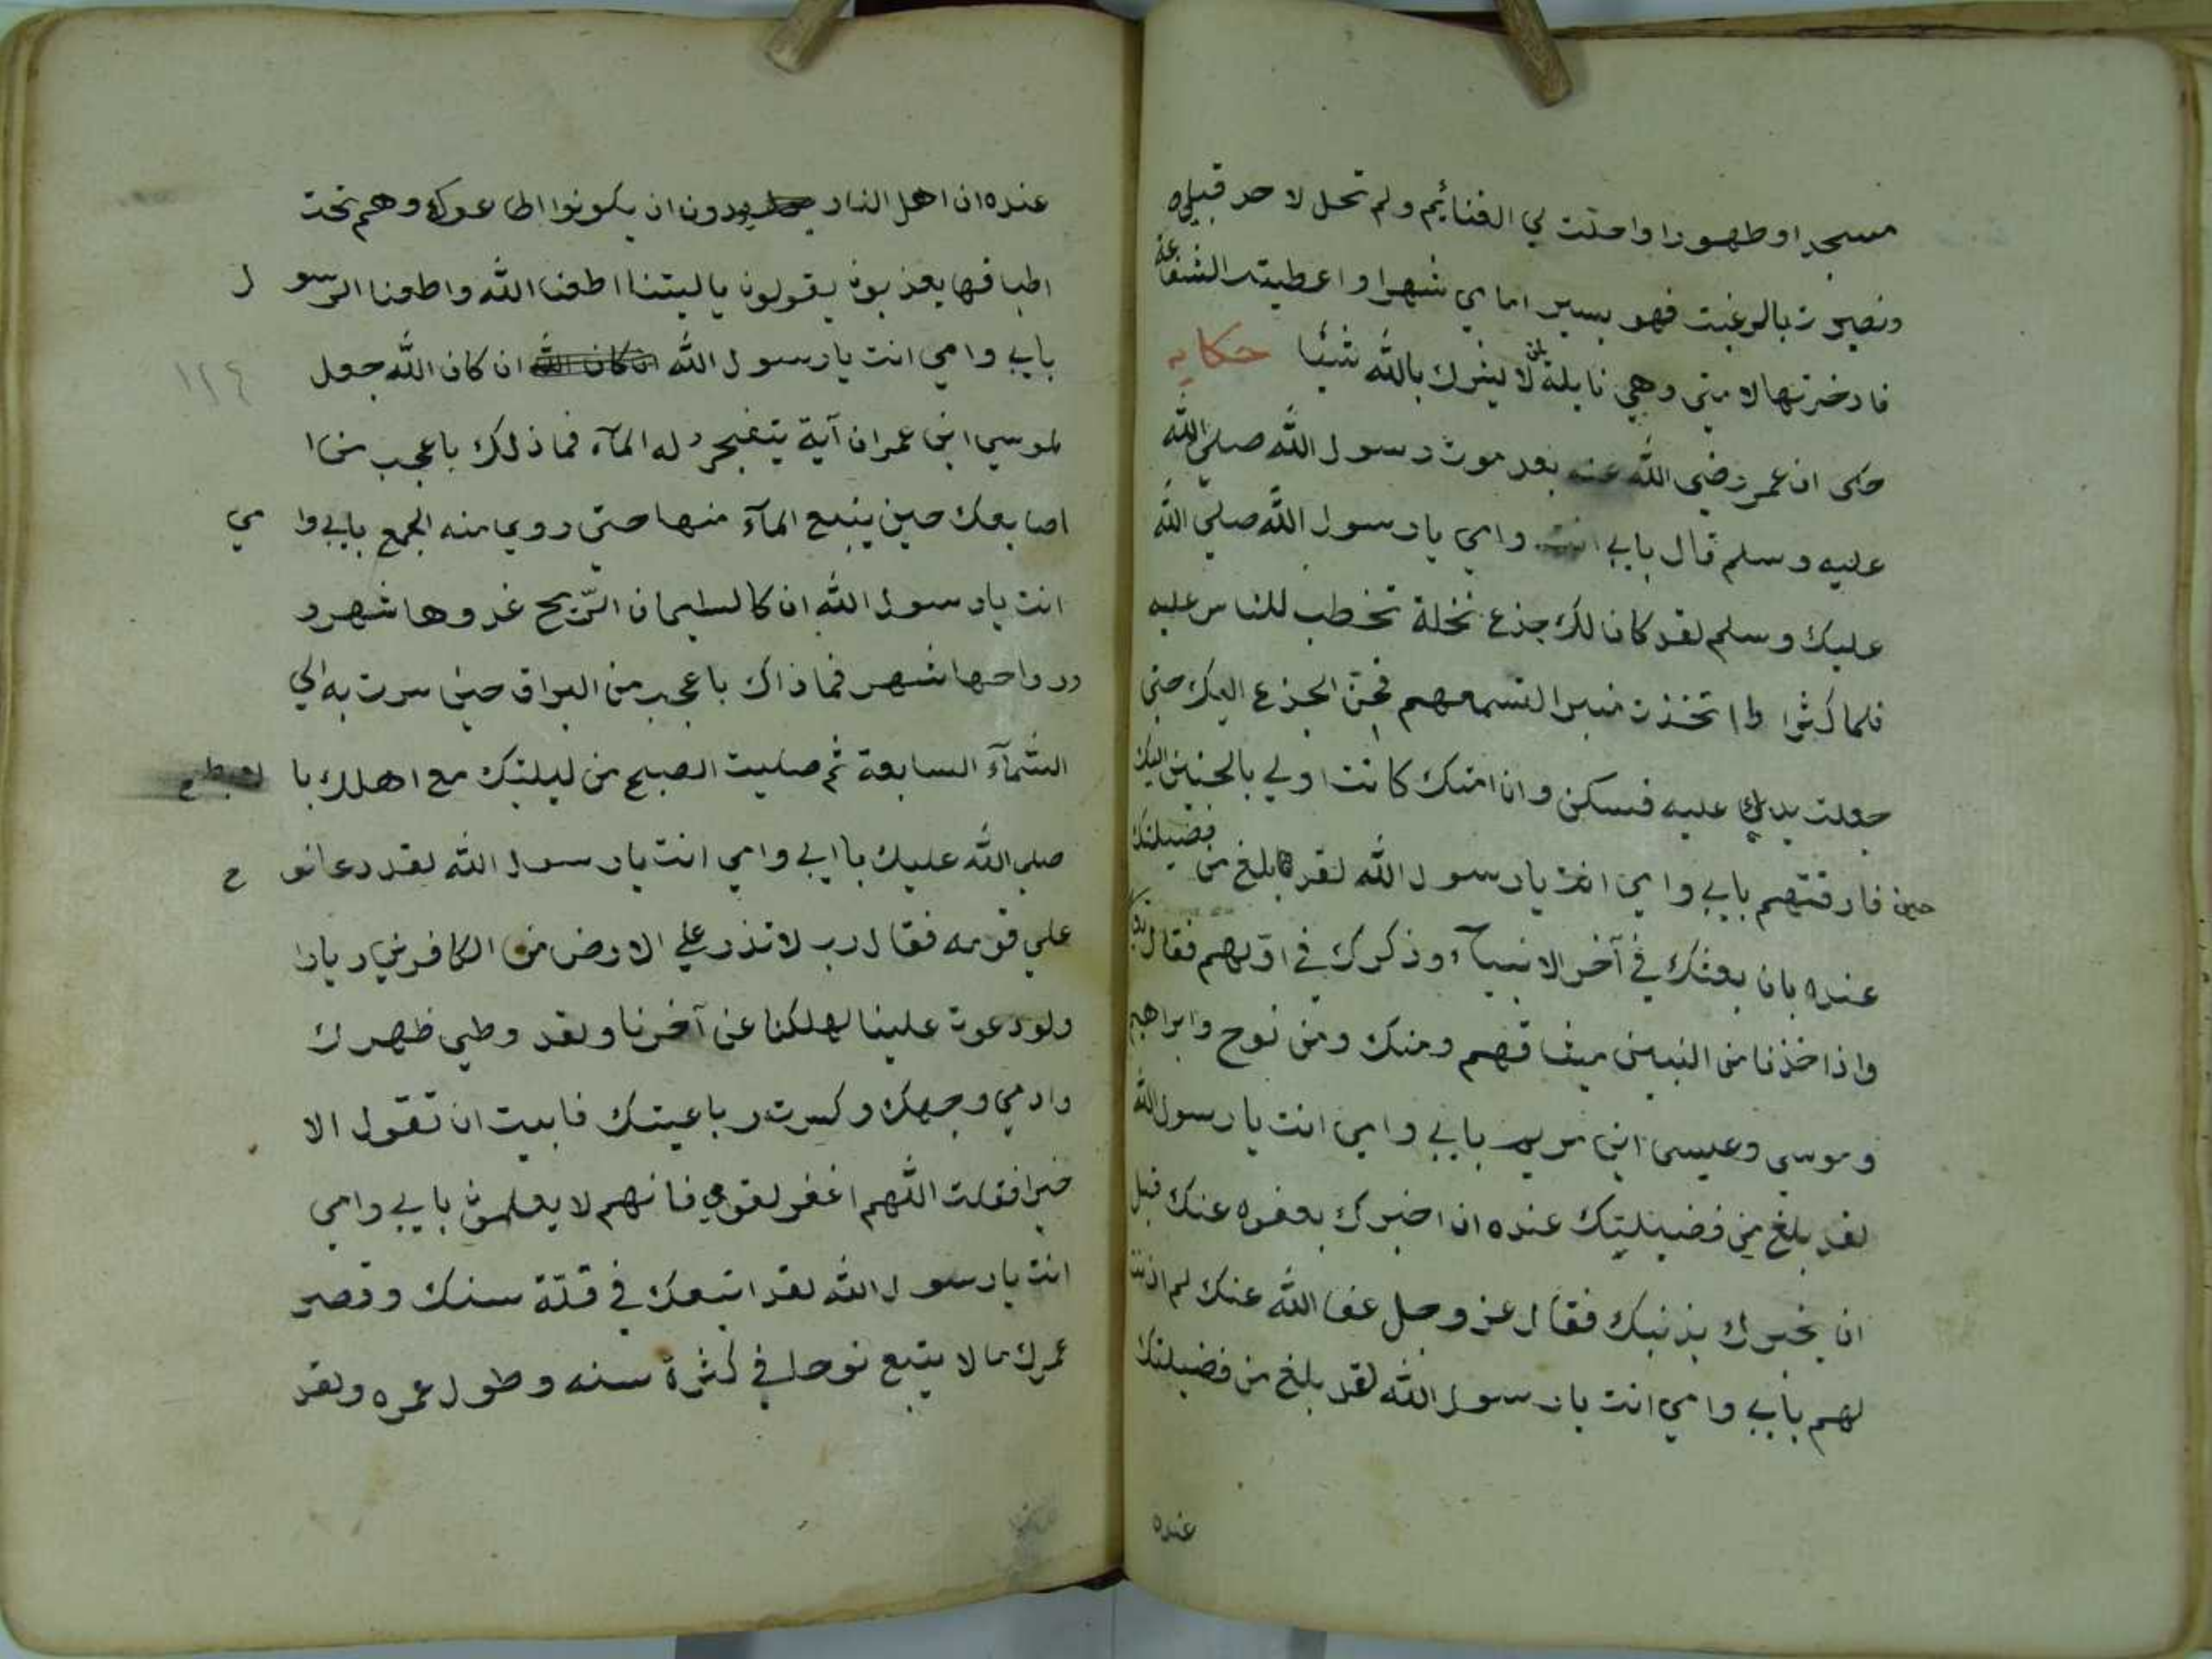 مسجدا وطهورا واحلت لي الغنائيم ولم تحل لاحد قبلي
ونصرت بالرعبت فهو يسير امامي شهرا واعطيت الشفاعة
فادخرتها لامتي وهي نايلة لمن لا يشرك بالله شيئا حكايه
حكى ان عمر رضي الله عنه بعد موت رسول الله صلي الله
عليه وسلم قال بابي انت وامي يا رسول الله صلي الله
عليك وسلم لقد كان لك جذع نخلة تخطب للناس عليه
فلما كثروا اتخذت منبرا لتسمعهم فحن الجذع اليك حتى
جعلت يدك عليه فسكن وان امتك كانت اولي بالحنين اليك
حين فارقتهم بابي وامي انت يا رسول الله لقد بلغ من فضيلتك
عنده بان بعثك في آخر الانبيآء وذكرك في اولهم فقال
واذ اخذنا من النبين ميثاقهم ومنك ومن نوح وابراهيم
وموسي وعيسى ابن مريم بابي وامي انت يا رسول الله
لقد بلغ من فضيلتك عنده ان اخبرك بعفوه عنك قبل
ان يخبرك بذنبك فقال عز وجل عفا الله عنك لم اذنت
لهم بابي وامي انت يا رسول الله لقد بلغ من فضيلتك
عنده
عنده ان اهل النار يودون ان يكونوا اطاعوك وهم تحت
اطباقها يعذبون يقولون يا ليتنا اطعنا الله واطعنا الرسول
بابي وامي انت يا رسول الله ان كان الله ان كان الله جعل
١٢٤
لموسي ابن عمران آية يتفجر له المآء فما ذلك باعجب من ا
اصابعك حين ينبع المآء منها حتى روي منه الجمع بابي وامي
انت يا رسول الله ان كا لسليمان الريح غدوها شهر و
ورواحها شهر فما ذاك باعجب من البراق حين سرت به الي
السمآء السابعة ثم صليت الصبح من ليلتك مع اهلك با لابطح
صلي الله عليك با ابي وامي انت يا رسول الله لقد دعا نوح
علي قومه فقال رب لا تذر علي الارض من الكافرين ديارا
ولو دعوت علينا لهلكنا عن آخرنا ولقد وطي ظهرك
وادمي وجهك وكسرت رباعيتك فابيت ان تقول الا
خيرا فقلت اللهم اغفر لقومي فانهم لا يعلمون بابي وامي
انت يا رسول الله لقد اتبعك في قلة سنك وقصر
عمرك ما لا يتبع نوحا في كثرة سنه وطول عمره ولقد